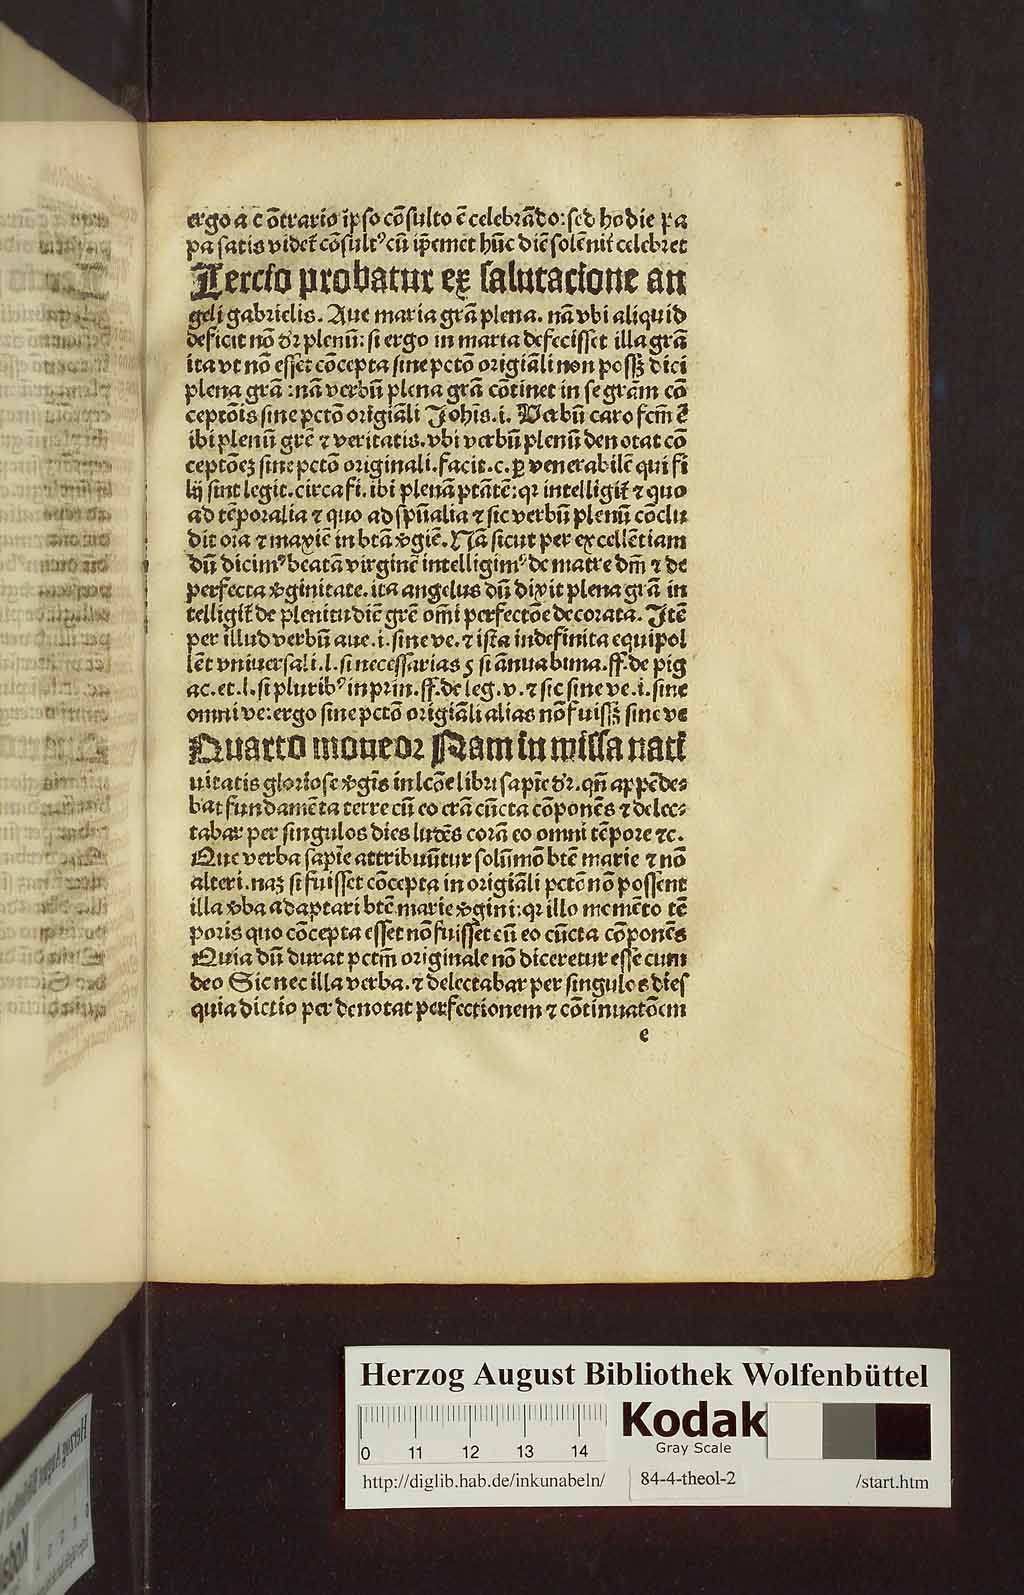 ergo a c ōtrario ip̄so cōsulto ē celebrādo: sed hodie pa
pa satis videt̄ cōsultꝰ cū ip̄emet hūc diē solēnit̄ celebret
Tercio probatur ex salutacione an
geli gabrielis. Aue maria grā plena. nā vbi aliquid
deficit nō dr̄ plenū: si ergo in maria defecisset illa grā
ita vt nō esset cōcepta sine pctō origiāli non possꝫ dici
plena grā: nā verbū plena grā cōtinet in se grām cō
ceptōis sine pctō origiāli Johīs. i. Verbū caro fcm̄ ē
ibi plenū grē ⁊ veritatis. vbi verbū plenū denotat cō
ceptōeꝫ sine pctō originali. facit. c. ꝑ venerabilē qui fi
lij sint legit. circa fi. ibi plenā ptātē: qr intelligit̄ ⁊ quo
ad tēporalia ⁊ quo ad spūalia ⁊ sic verbū plenū cōclu
dit oīa ⁊ maxīe in btā v̄gīe. Nā sicut per excellētiam
dū dicimꝰ beatā virginē intelligimꝰ de matre dm̄ ⁊ de
perfecta v̄ginitate. ita angelus dū dixit plena grā in
telligit̄ de plenitudīe grē om̄i perfectōe decorata. Itē
per illud verbū aue. i. sine ve. ⁊ ista indefinita equipol
lēt vniuersali. l. si necessarias § si ānua bima. ff. de pig
ac. et. l. si pluribꝰ in prin. ff. de leg. v. ⁊ sic sine ve. i. sine
omni ve: ergo sine pctō origiāli alias nō fuissꝫ sine ve
Quarto moueor Nam in missa nati
uitatis gloriose v̄gīs in lcōe libri sapīe dr̄. qn̄ appēde-
bat fundamēta terre cū eo erā cūcta cōponēs ⁊ delec-
tabar per singulos dies ludēs corā eo omni tēpore ⁊c.
Que verba sapīe attribuūtur solūmō btē marie ⁊ nō
alteri. naꝫ si fuisset cōcepta in origiāli pctō nō possent
illa v̄ba adaptari btē marie v̄gini: qr illo momēto tē
poris quo cōcepta esset nō fuisset cū eo cūcta cōponēs
Quia dū durat pctm̄ originale nō diceretur esse cum
deo Sic nec illa verba. ⁊ delectabar per singulos dies
quia dictio per denotat perfectionem ⁊ cōtinuatōem
e
Herzog August Bibliothek Wolfenbüttel
0 11 12 13 14
Kodak
Gray Scale
http://diglib.hab.de/inkunabeln/ 84-4-theol-2 /start.htm